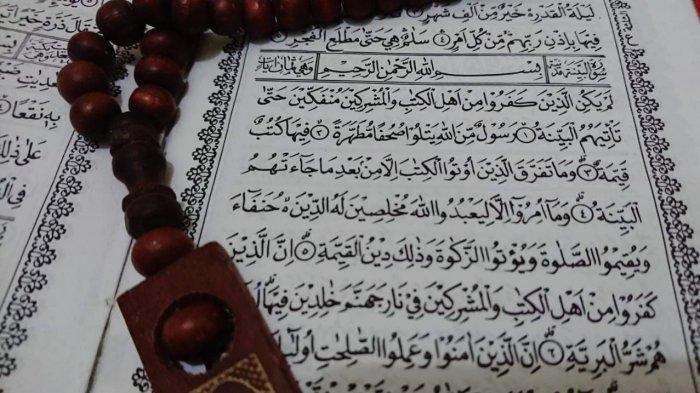 لَيْلَةُ الْقَدْرِ ە خَيْرٌ مِّنْ اَلْفِ شَهْرٍ
فِيْهَا بِاِذْنِ رَبِّهِمْ مِّنْ كُلِّ اَمْرٍ ٤ سَلٰمٌ هِيَ حَتّٰى مَطْلَعِ الْفَجْرِ
سُوْرَةُ الْبَيِّنَةِ مَدَنِيَّةٌ بِسْمِ اللّٰهِ الرَّحْمٰنِ الرَّحِيْمِ وَهِيَ ثَمَانُ اٰيَاتٍ
لَمْ يَكُنِ الَّذِيْنَ كَفَرُوْا مِنْ اَهْلِ الْكِتٰبِ وَالْمُشْرِكِيْنَ مُنْفَكِّيْنَ حَتّٰى
تَأْتِيَهُمُ الْبَيِّنَةُ ١ رَسُوْلٌ مِّنَ اللّٰهِ يَتْلُوْا صُحُفًا مُّطَهَّرَةً ٢ فِيْهَا كُتُبٌ
قَيِّمَةٌ ٣ وَمَا تَفَرَّقَ الَّذِيْنَ اُوْتُوا الْكِتٰبَ اِلَّا مِنْ بَعْدِ مَا جَآءَتْهُمُ
الْبَيِّنَةُ ٤ وَمَآ اُمِرُوْٓا اِلَّا لِيَعْبُدُوا اللّٰهَ مُخْلِصِيْنَ لَهُ الدِّيْنَ حُنَفَآءَ
وَيُقِيْمُوا الصَّلٰوةَ وَيُؤْتُوا الزَّكٰوةَ وَذٰلِكَ دِيْنُ الْقَيِّمَةِ ٥ اِنَّ الَّذِيْنَ
كَفَرُوْا مِنْ اَهْلِ الْكِتٰبِ وَالْمُشْرِكِيْنَ فِيْ نَارِ جَهَنَّمَ خٰلِدِيْنَ فِيْهَا
هُمْ شَرُّ الْبَرِيَّةِ ٦ اِنَّ الَّذِيْنَ اٰمَنُوْا وَعَمِلُوا الصّٰلِحٰتِ
ذَرَّةٍ خَيْرًا
بِهٖ نَقْعًا
عَلٰى ذٰلِكَ